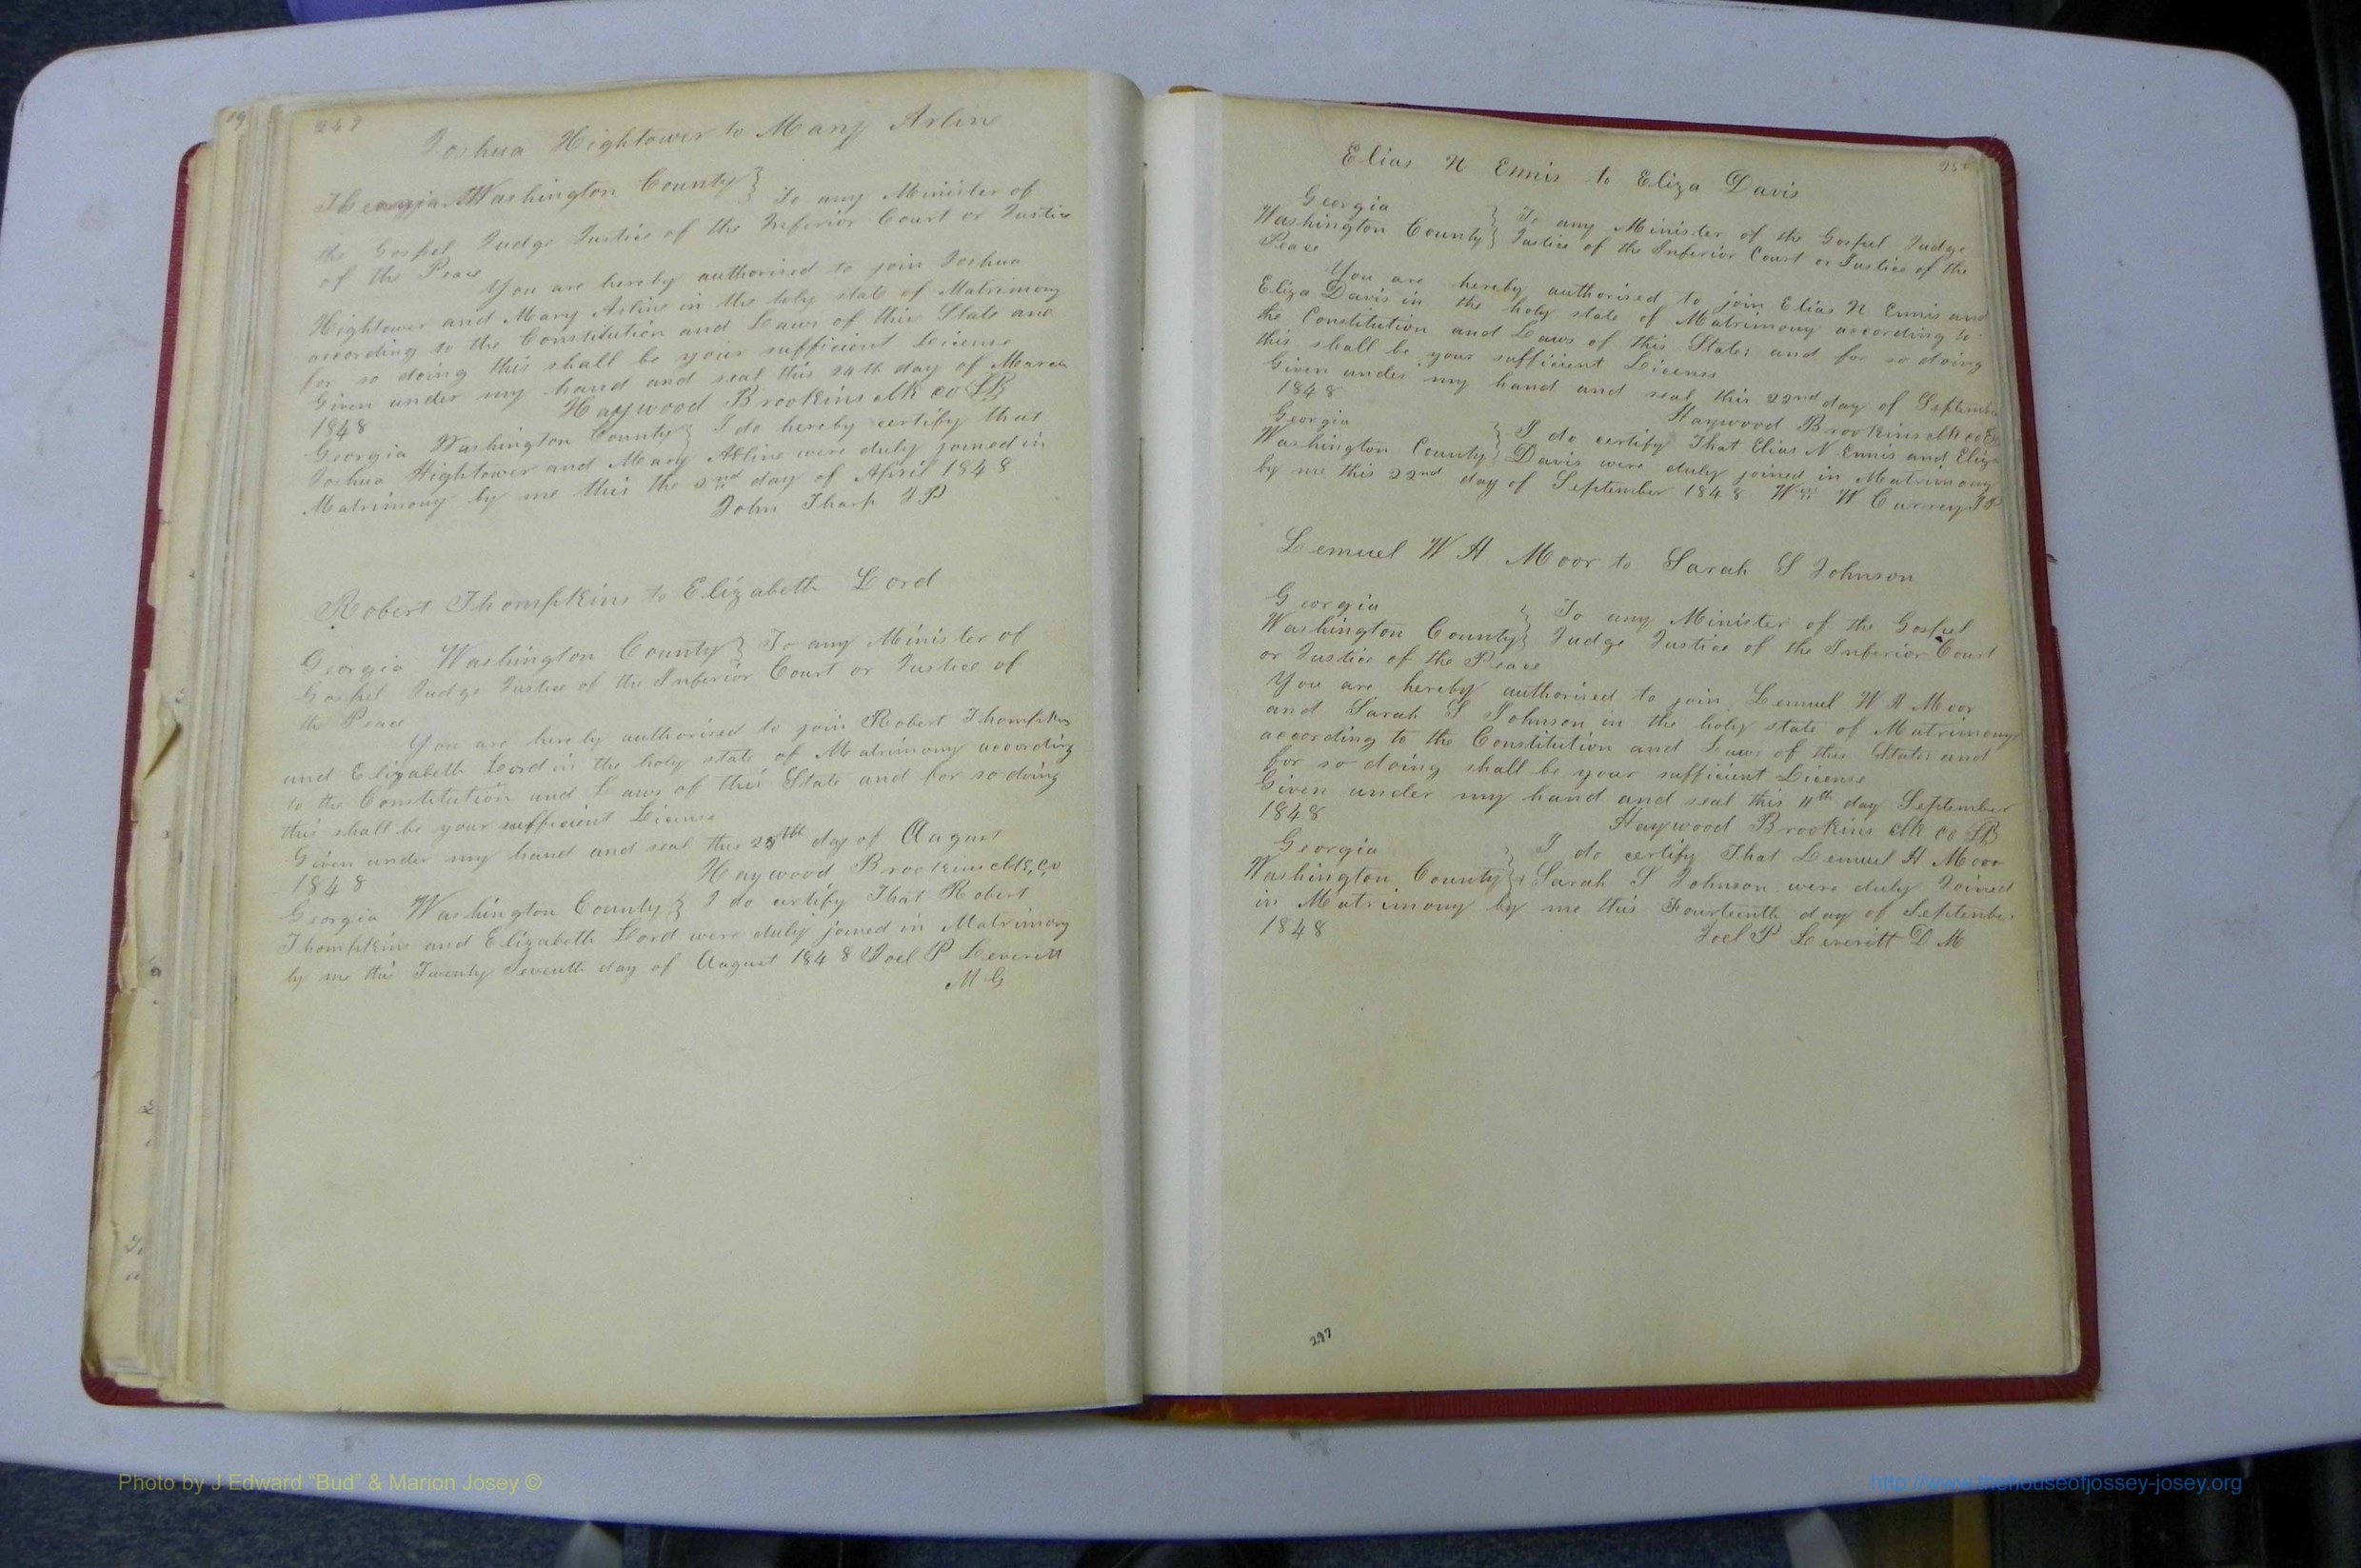 19
249
Joshua Hightower to Mary Arline
Georgia Washington County } To any Minister of
the Gospel Judge Justice of the Inferior Court or Justice
of the Peace
You are hereby authorised to join Joshua
Hightower and Mary Arline in the holy state of Matrimony
according to the Constitution and Laws of this State and
for so doing this shall be your sufficient License
Given under my hand and seal this 24th day of March
1848 Haywood Brookins clk co
Georgia Washington County } I do hereby certify that
Joshua Hightower and Mary Arline were duly joined in
Matrimony by me this the 2nd day of April 1848
John Tharp J P
Robert Thompkins to Elizabeth Lord
Georgia Washington County } To any Minister of
Gospel Judge Justice of the Inferior Court or Justice of
the Peace
You are hereby authorised to join Robert Thompkins
and Elizabeth Lord in the holy state of Matrimony according
to the Constitution and Laws of this State and for so doing
this shall be your sufficient License
Given under my hand and seal this day of August
1848 Haywood Brookins clk, co
Georgia Washington County } I do certify That Robert
Thompkins and Elizabeth Lord were duly joined in Matrimony
by me this Twenty Seventh day of August 1848 Joel P Leverett
M G
250
Elias N Ennis to Eliza Davis
Georgia
Washington County } To any Minister of the Gospel Judge
Justice of the Inferior Court or Justice of the
Peace
You are hereby authorised to join Elias N Ennis and
Eliza Davis in the holy state of Matrimony according to
the Constitution and Laws of this State; and for so doing
this shall be your sufficient License
Given under my hand and seal this 22nd day of September
1848 Haywood Brookins clk co
Georgia
Washington County } I do certify That Elias N Ennis and Eliza
Davis were duly joined in Matrimony
by me this 22nd day of September 1848 Wm W Currey J P
Lemuel W H Moor to Sarah S Johnson
Georgia
Washington County } To any Minister of the Gospel
Judge Justice of the Inferior Court
or Justice of the Peace
You are hereby authorised to join Lemuel W H Moor
and Sarah S Johnson in the holy state of Matrimony
according to the Constitution and Laws of this State; and
for so doing shall be your sufficient License
Given under my hand and seal this 11th day September
1848 Haywood Brookins clk co
Georgia
Washington County } I do certify That Lemuel H Moor
+ Sarah S Johnson were duly Joined
in Matrimony by me this Fourteenth day of September
1848 Joel P Leveritt D M
297
Photo by J Edward "Bud" & Marion Josey ©
http://www.thehouseofjossey-josey.org